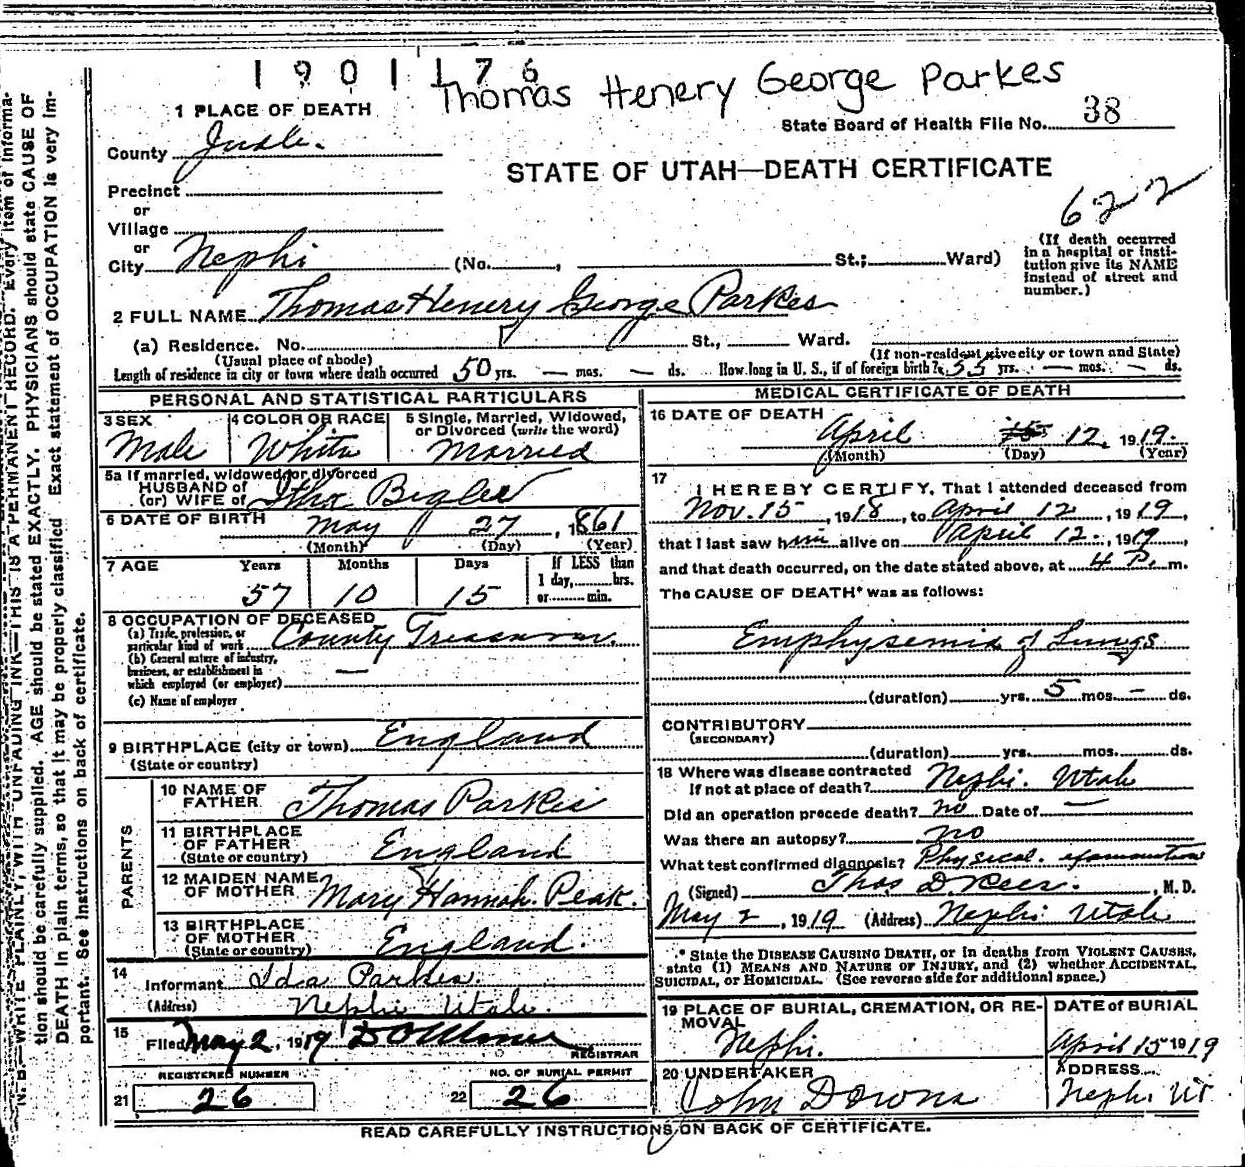 1901176
Thomas Henery George Parkes
1 PLACE OF DEATH
State Board of Health File No. 38
County Juab.
STATE OF UTAH—DEATH CERTIFICATE
Precinct
or
Village
622
or
City Nephi (No. , St.; Ward)
(If death occurred in a hospital or institution give its NAME instead of street and number.)
2 FULL NAME Thomas Henery George Parkes
(a) Residence. No. St., Ward.
(Usual place of abode)
(If non-resident give city or town and State)
Length of residence in city or town where death occurred 50 yrs. — mos. — ds. How long in U. S., if of foreign birth? 55 yrs. — mos. — ds.
PERSONAL AND STATISTICAL PARTICULARS
3 SEX Male
4 COLOR OR RACE White
5 Single, Married, Widowed, or Divorced (write the word) Married
5a If married, widowed or divorced
HUSBAND of
(or) WIFE of Bigler
6 DATE OF BIRTH May 27, 1861
(Month) (Day) (Year)
7 AGE Years 57 Months 10 Days 15 If LESS than 1 day, hrs. or min.
8 OCCUPATION OF DECEASED
(a) Trade, profession, or particular kind of work County Treasurer.
(b) General nature of industry, business, or establishment in which employed (or employer) —
(c) Name of employer
9 BIRTHPLACE (city or town) England
(State or country)
PARENTS
10 NAME OF FATHER Thomas Parkes
11 BIRTHPLACE OF FATHER (State or country) England
12 MAIDEN NAME OF MOTHER Mary Hannah Peak.
13 BIRTHPLACE OF MOTHER (State or country) England.
14
Informant Ida Parkes.
(Address) Nephi Utah.
15
Filed May 2, 1919
REGISTRAR
REGISTERED NUMBER
21 26
NO. OF BURIAL PERMIT
22 26
MEDICAL CERTIFICATE OF DEATH
16 DATE OF DEATH
April 15 12, 1919.
(Month) (Day) (Year)
17
I HEREBY CERTIFY, That I attended deceased from
Nov. 15, 1918, to April 12, 1919,
that I last saw him alive on April 12, 1919,
and that death occurred, on the date stated above, at 4 P. m.
The CAUSE OF DEATH* was as follows:
Emphysemia of Lungs
(duration) yrs. 5 mos. — ds.
CONTRIBUTORY
(SECONDARY)
(duration) yrs. mos. ds.
18 Where was disease contracted
If not at place of death? Nephi. Utah
Did an operation precede death? no Date of —
Was there an autopsy? no
What test confirmed diagnosis? Physical. examination
(Signed) Thos D. Rees. , M. D.
May 2, 1919 (Address) Nephi Utah
* State the DISEASE CAUSING DEATH, or in deaths from VIOLENT CAUSES,
state (1) MEANS AND NATURE OF INJURY, and (2) whether ACCIDENTAL,
SUICIDAL, or HOMICIDAL. (See reverse side for additional space.)
19 PLACE OF BURIAL, CREMATION, OR REMOVAL
Nephi.
DATE OF BURIAL
April 15 1919
20 UNDERTAKER
John Downs
ADDRESS
Nephi Ut
READ CAREFULLY INSTRUCTIONS ON BACK OF CERTIFICATE.
N. B.—WRITE PLAINLY, WITH UNFADING INK—THIS IS A PERMANENT RECORD. Every item of informa-
tion should be carefully supplied. AGE should be stated EXACTLY. PHYSICIANS should state CAUSE OF
DEATH in plain terms, so that it may be properly classified. Exact statement of OCCUPATION is very im-
portant. See instructions on back of certificate.